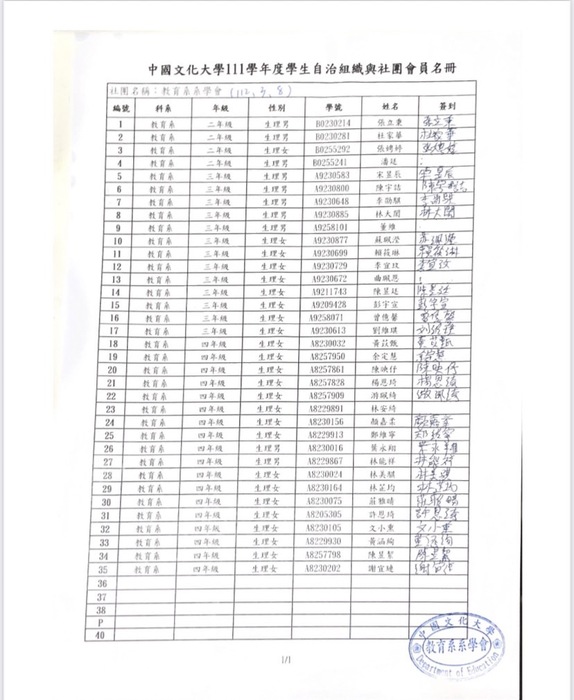 中國文化大學111學年度學生自治組織與社團會員名冊
社團名稱：教育系系學會 (112, 3, 8)
編號 科系 年級 性別 學號 姓名 簽到
1 教育系 二年級 生理男 B0230214 張立秉 張立秉
2 教育系 二年級 生理男 B0230281 杜家華
3 教育系 二年級 生理女 B0255292 張娉婷
4 教育系 二年級 生理男 B0255241 潘廷
5 教育系 三年級 生理男 A9230583 宋昱辰 宋昱辰
6 教育系 三年級 生理男 A9230800 陳宇喆
7 教育系 三年級 生理男 A9230648 李劭騏
8 教育系 三年級 生理男 A9230885 林大閎 林大閎
9 教育系 三年級 生理男 A9258101 董維
10 教育系 三年級 生理女 A9230877 蘇珮瀅
11 教育系 三年級 生理女 A9230699 賴莀琳
12 教育系 三年級 生理女 A9230729 李宜玟 李宜玟
13 教育系 三年級 生理女 A9230672
14 教育系 三年級 生理女 A9211743 陳昱廷
15 教育系 三年級 生理女 A9209428 彭宇宣 彭宇宣
16 教育系 三年級 生理女 A9258071 曾億馨
17 教育系 三年級 生理女 A9230613 劉維琪
18 教育系 四年級 生理女 A8230032 黃苡甄 黃苡甄
19 教育系 四年級 生理女 A8257950 余定慧
20 教育系 四年級 生理女 A8257861 陳映伃 陳映伃
21 教育系 四年級 生理女 A8257828 楊恩琦 楊恩琦
22 教育系 四年級 生理女 A8257909 游珮綺
23 教育系 四年級 生理女 A8229891 林安綺
24 教育系 四年級 生理女 A8230156 顏嘉柔
25 教育系 四年級 生理女 A8229913 鄭維寧
26 教育系 四年級 生理男 A8230016 葉永翔
27 教育系 四年級 生理男 A8229867 林能祥 林能祥
28 教育系 四年級 生理女 A8230024 林美騏
29 教育系 四年級 生理女 A8230164 林芷均
30 教育系 四年級 生理女 A8230075 莊雅晴
31 教育系 四年級 生理女 A8205305 許恩綺 許恩綺
32 教育系 四年級 生理女 A8230105 文小熏
33 教育系 四年級 生理女 A8229930 黃涵絢
34 教育系 四年級 生理女 A8257798 陳昱絜
35 教育系 四年級 生理女 A8230202 謝宜婕
36
37
38
P
40
1/1
中國文化大學
教育系系學會
Department of Education